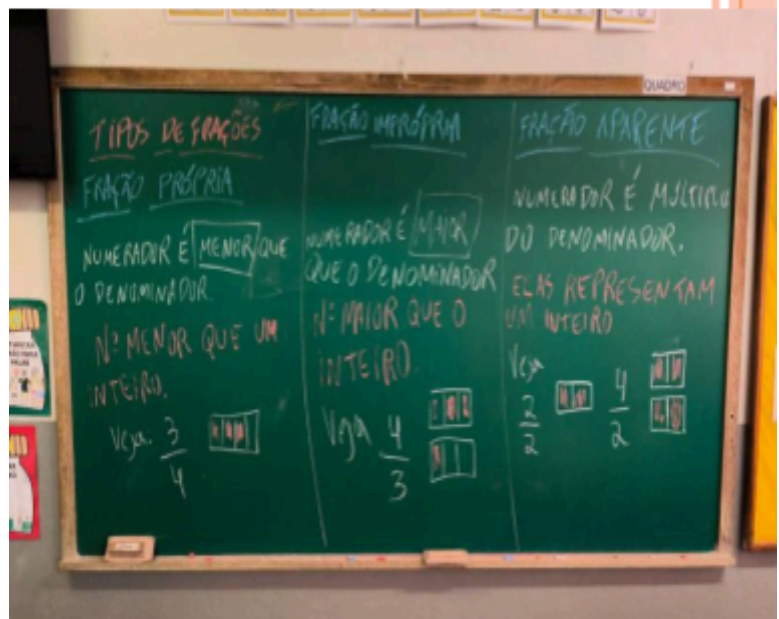 QUADRO
TIPOS DE FRAÇÕES
FRAÇÃO PRÓPRIA
NUMERADOR É MENOR QUE
O DENOMINADOR.
Nº MENOR QUE UM
INTEIRO.
Veja: 3
4
FRAÇÃO IMPRÓPRIA
NUMERADOR É MAIOR
QUE O DENOMINADOR
Nº MAIOR QUE O
INTEIRO.
Veja 4
3
FRAÇÃO APARENTE
NUMERADOR É MÚLTIPLO
DO DENOMINADOR.
ELAS REPRESENTAM
UM INTEIRO
Veja
2 4
2 2